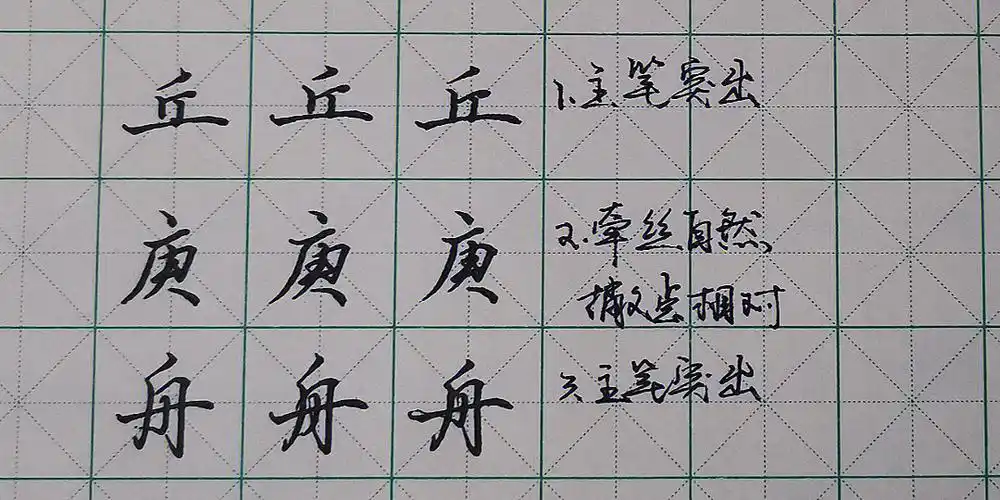 丘 丘 丘 1.主笔突出
庚 庚 庚 2.牵丝自然
撇点相对
舟 舟 舟 3.主笔突出